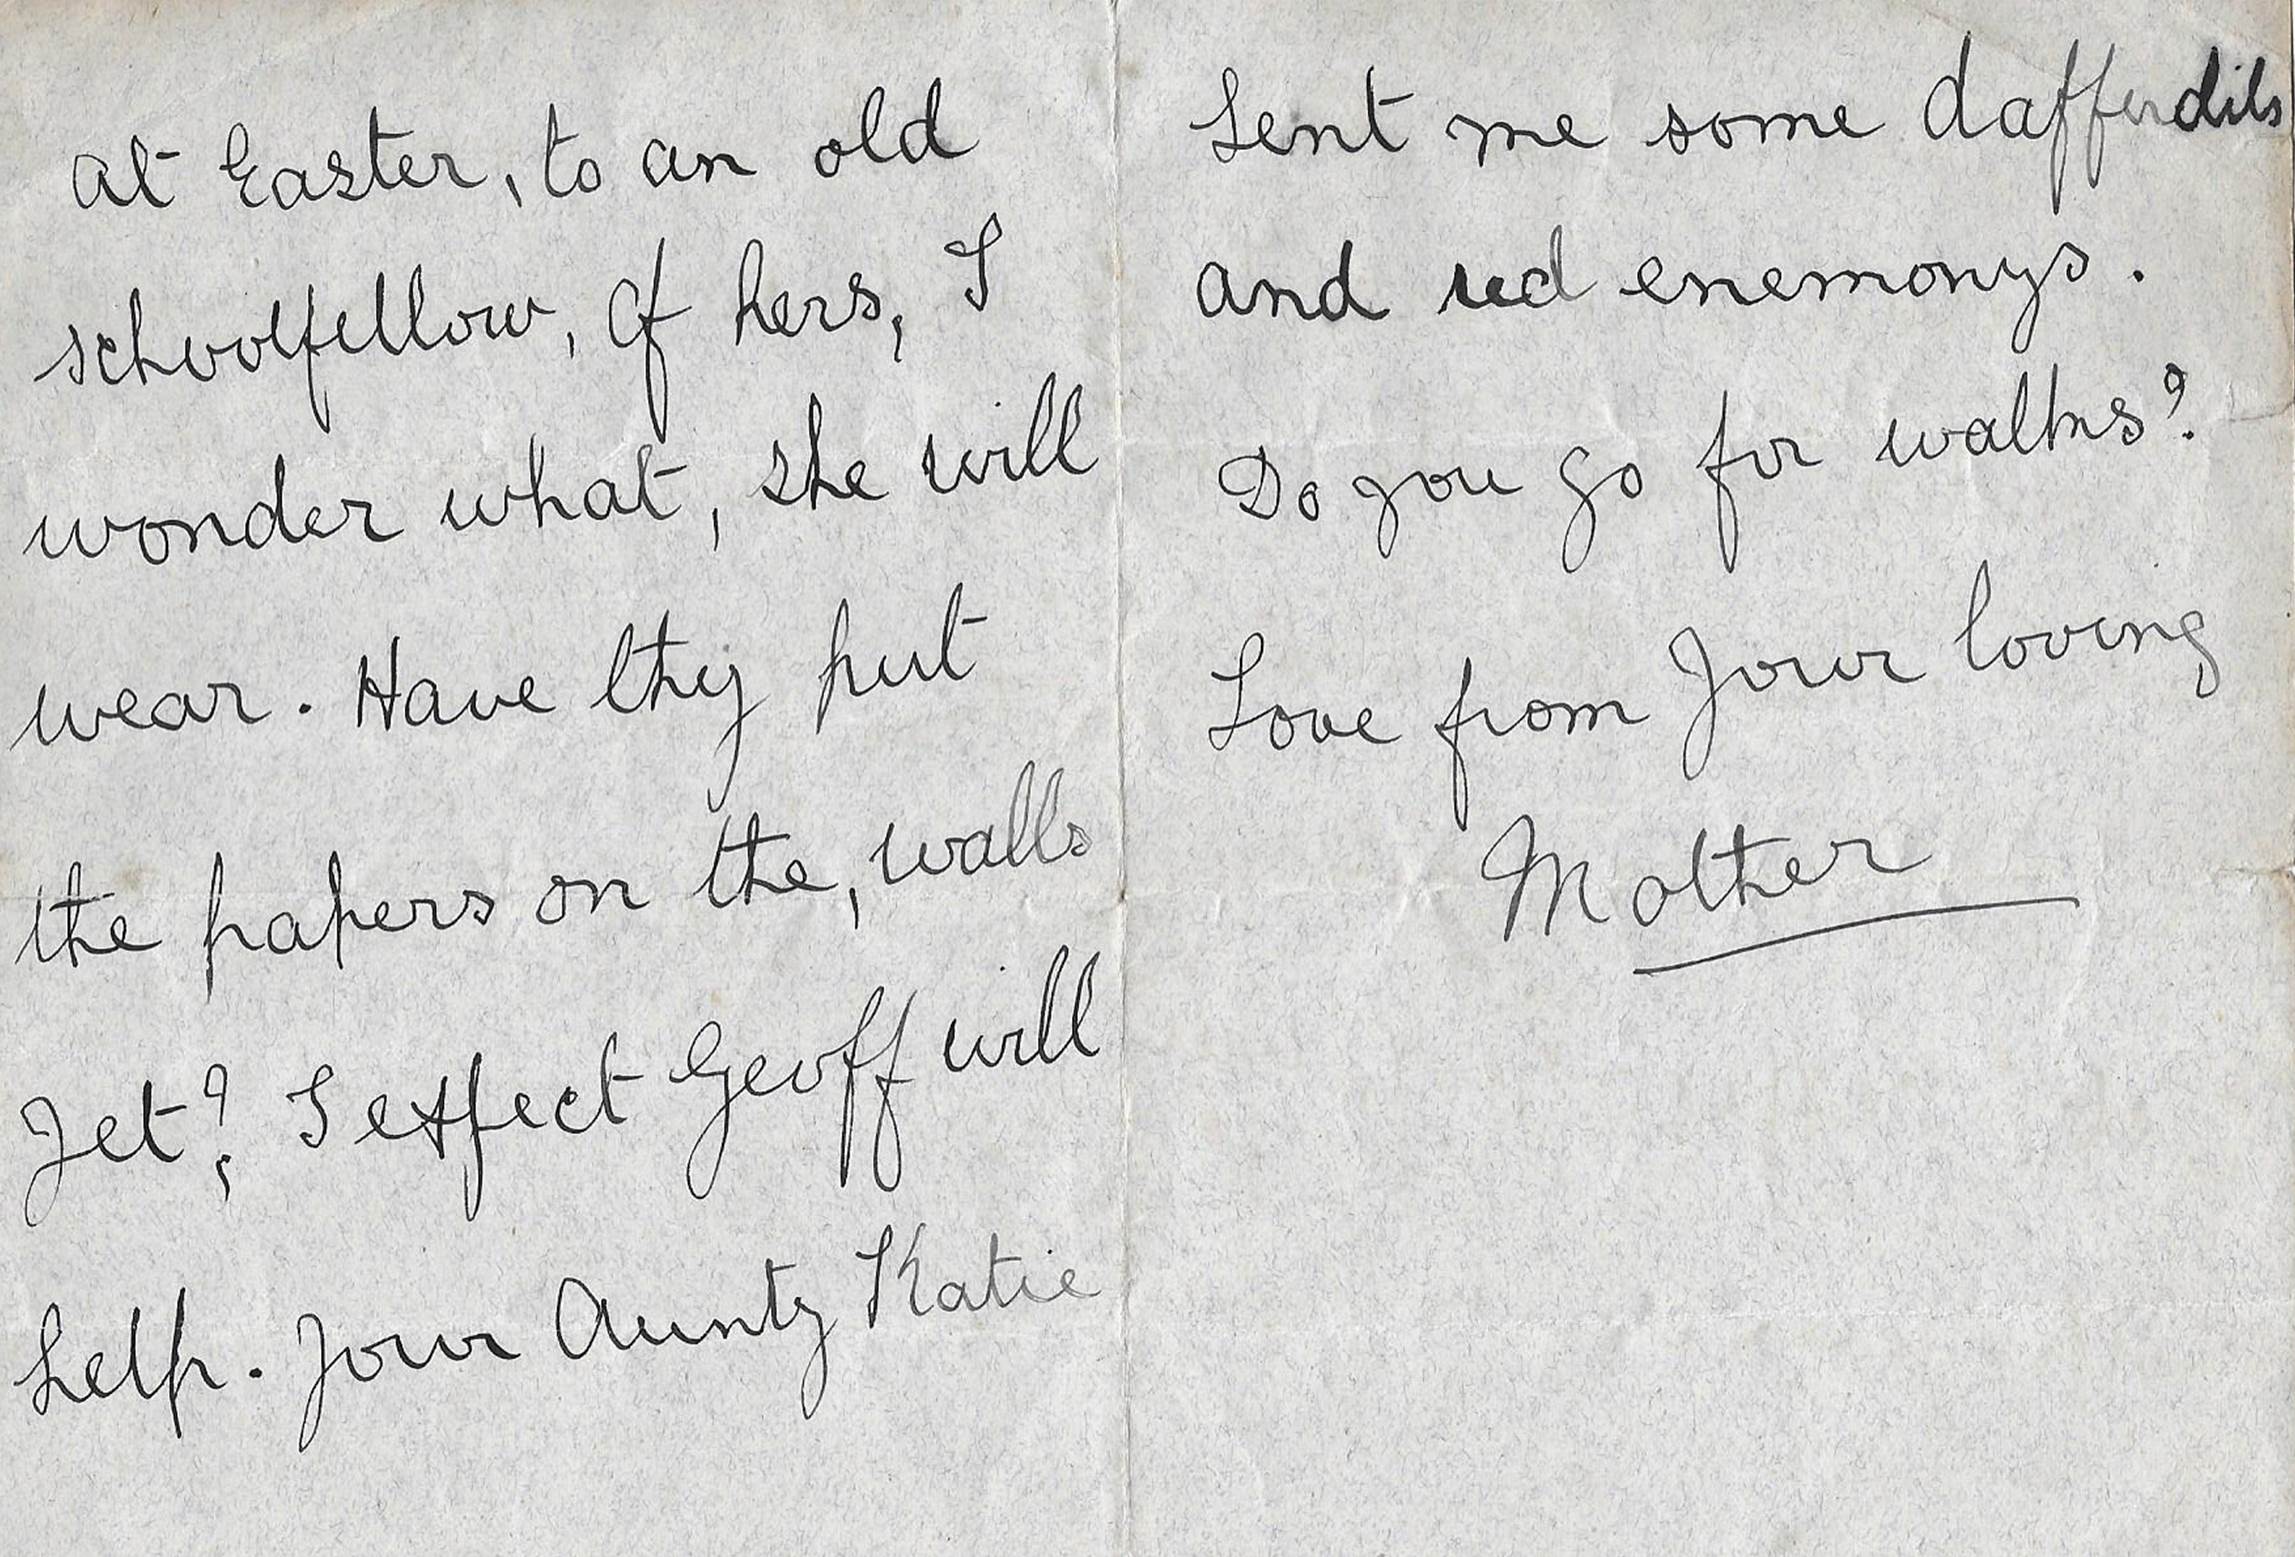 at Easter, to an old
schoolfellow, of hers, I
wonder what, she will
wear. Have they put
the papers on the, walls
Yet? I expect Geoff will
help. Your Aunty Katie
Sent me some dafferdils
and red enemonys.
Do you go for walks?
Love from Your loving
Mother